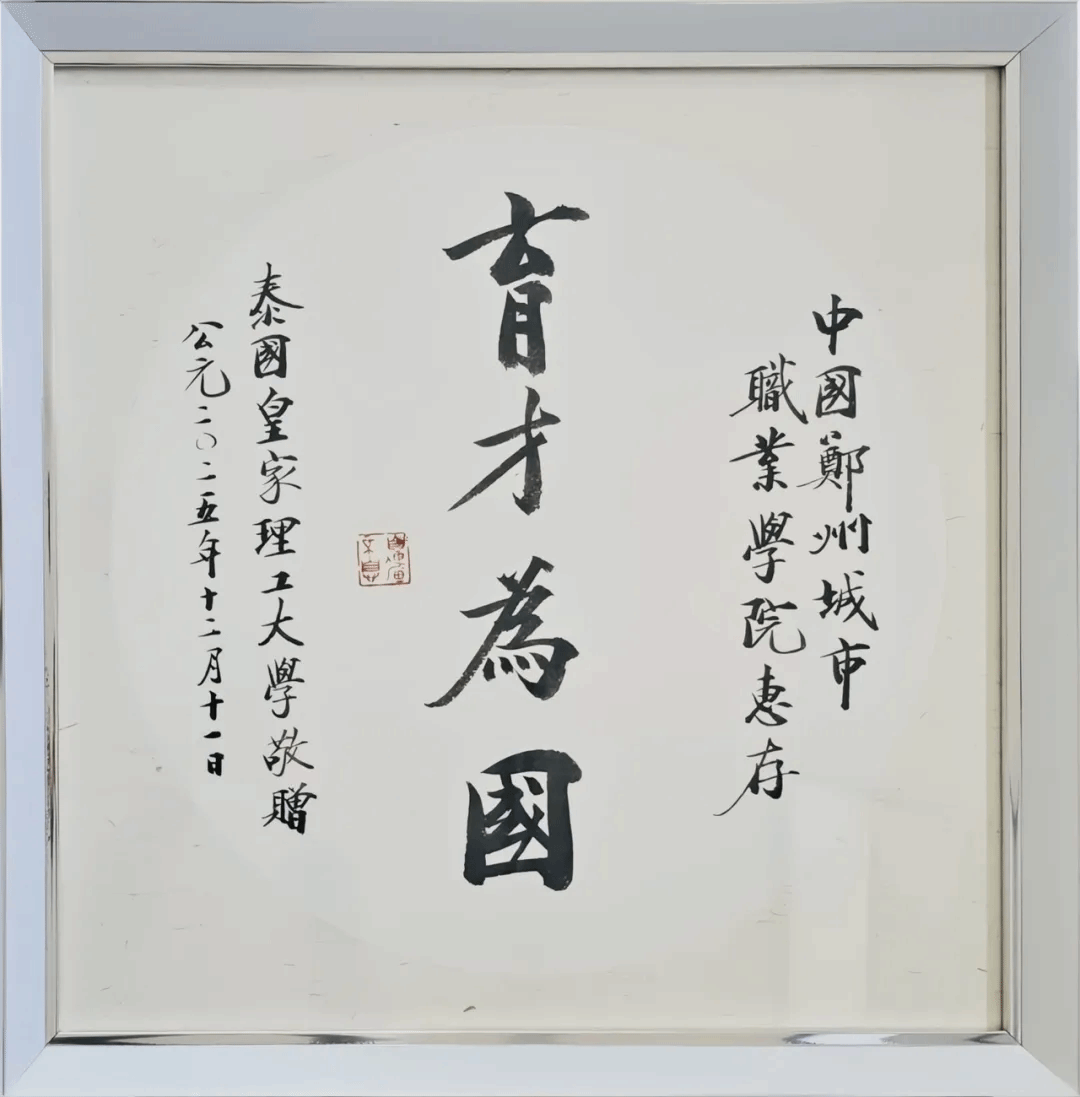 中國鄭州城市
職業學院惠存
育才為國
泰國皇家理工大學敬贈
公元二〇二五年十二月十一日